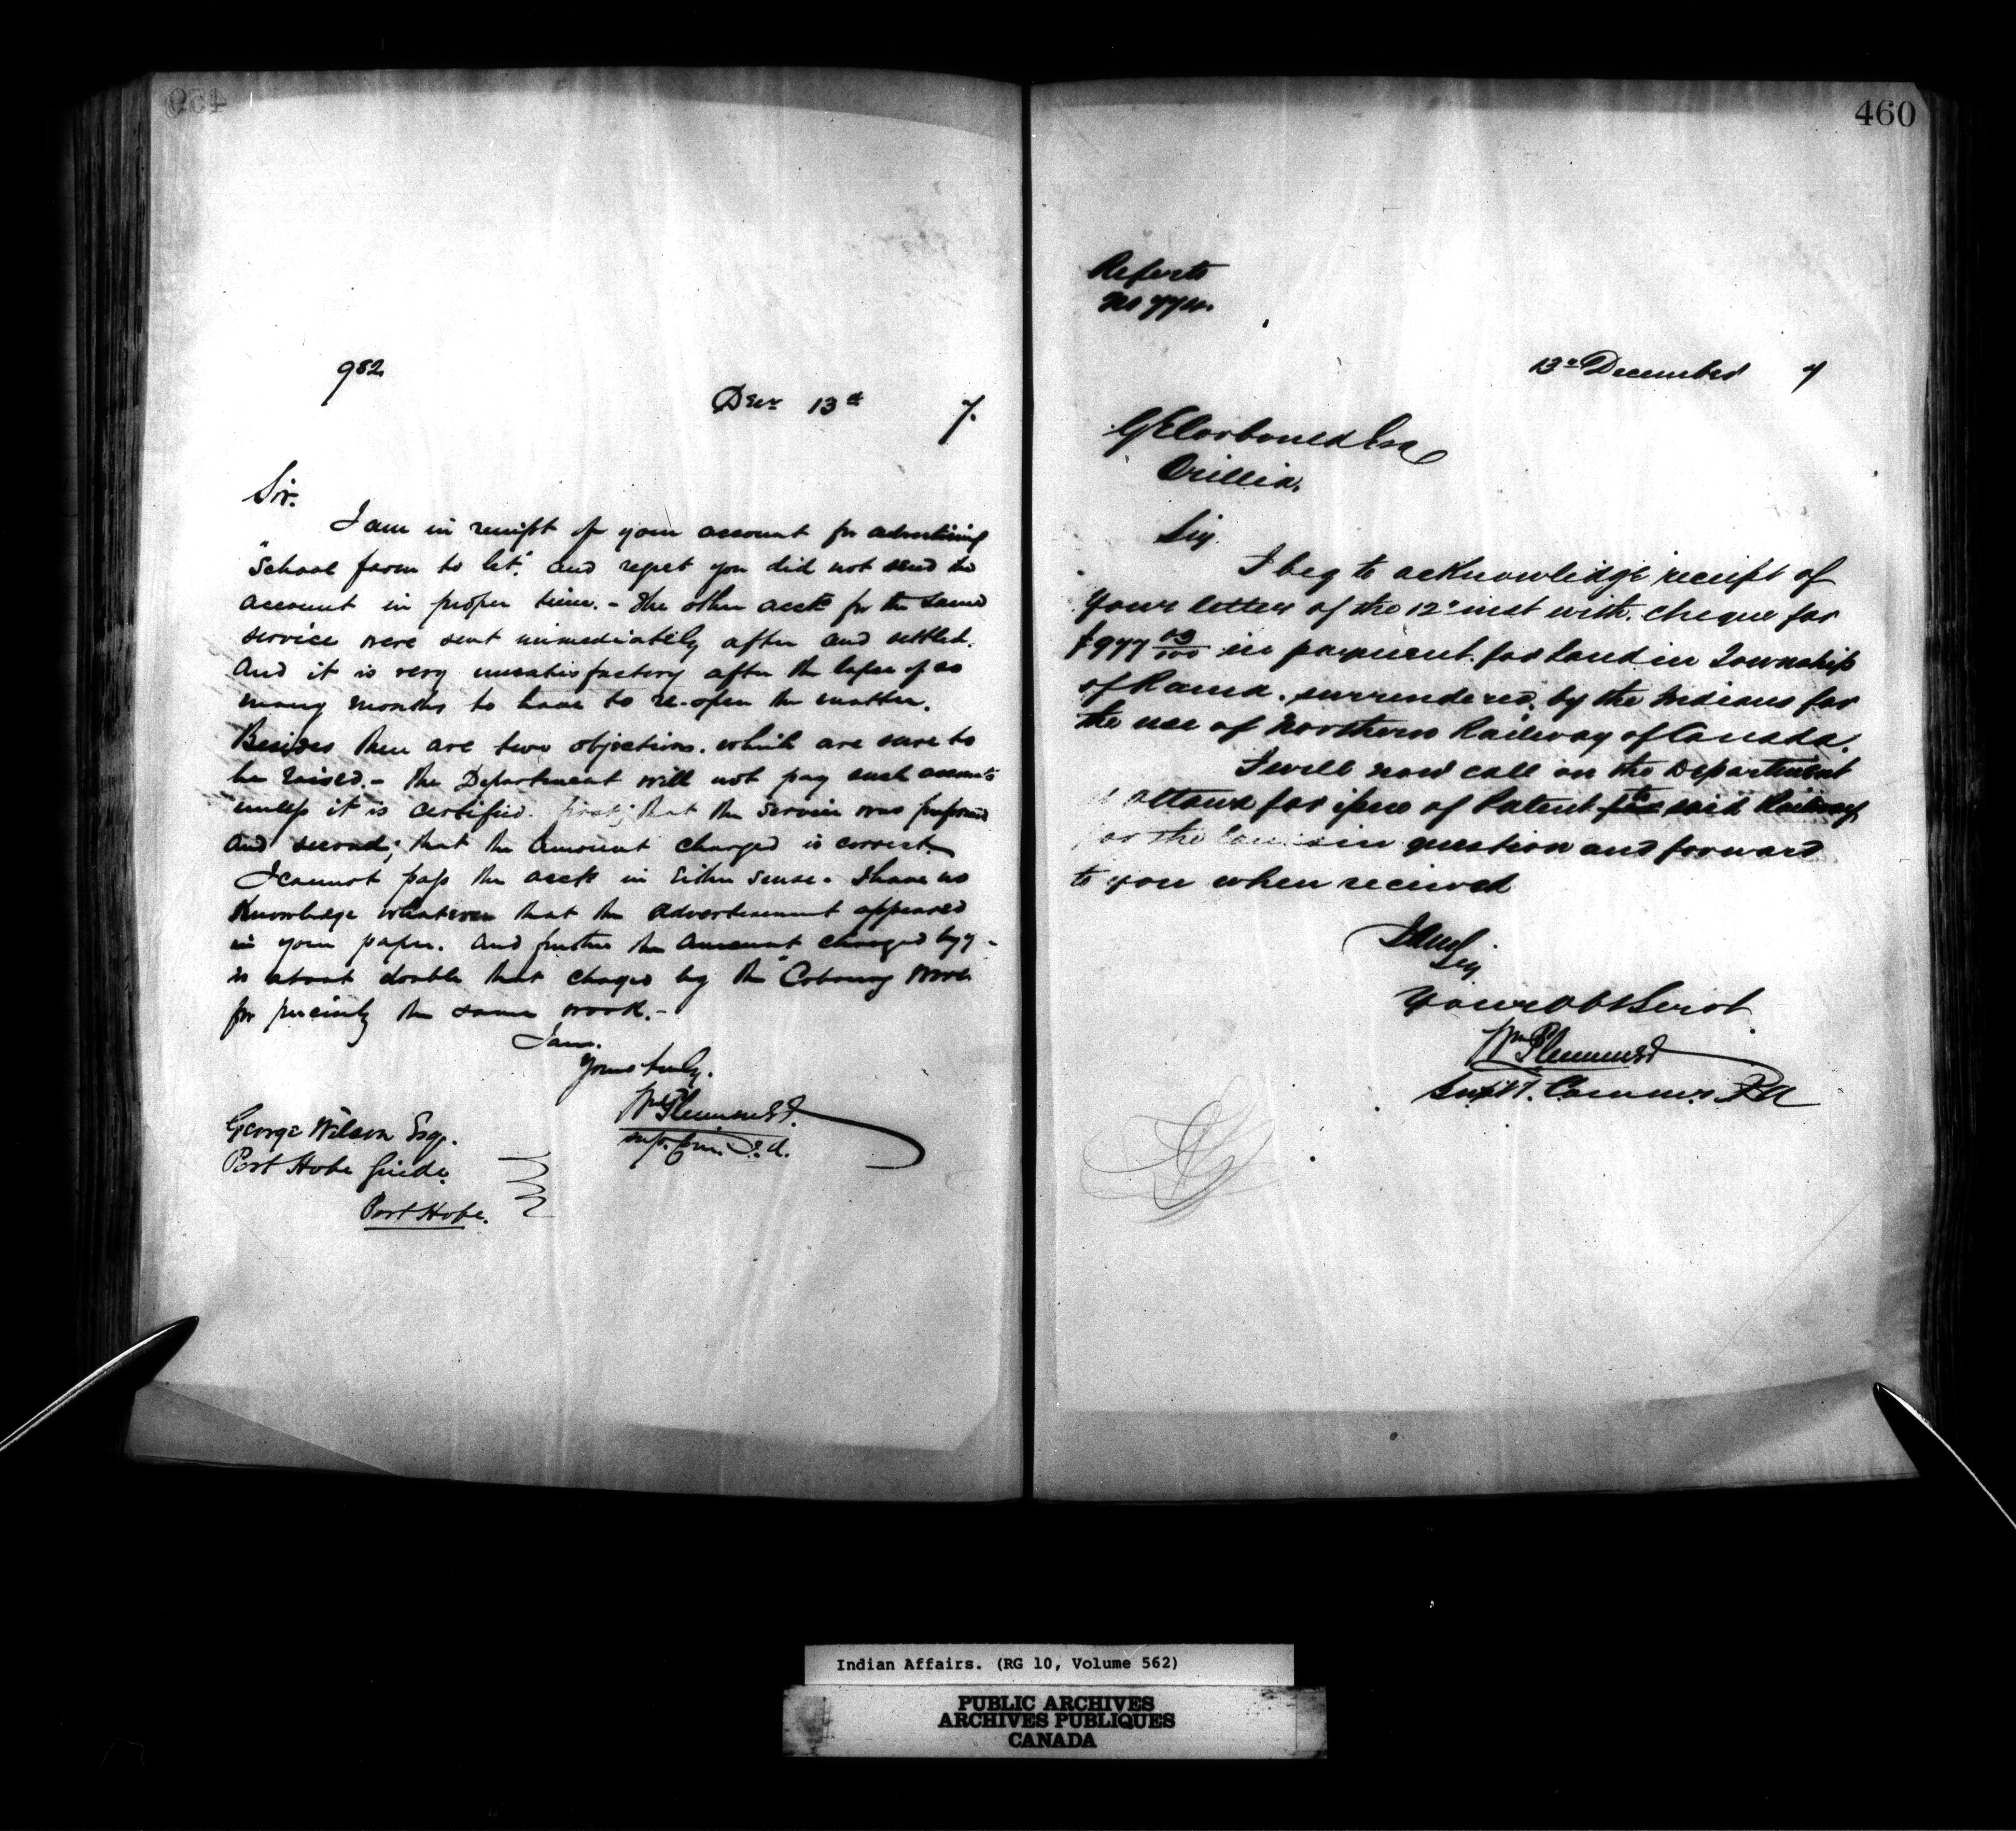 459
982
Decr 13th 7.
Sir.
I am in receipt of your account for advertising
"School farm to let", and regret you did not send the
account in proper time. - The other accts for the same
service were sent immediately after and settled.
And it is very unsatisfactory after the lapse of so
many months to have to re-open the matter.
Besides there are two objections. which are sure to
be raised. - the Department will not pay such accounts
unless it is certified. first; that the service was performed
and second; that the amount charged is correct.
I cannot pass the acct in either sense. I have no
Knowledge whatever that the advertisement appeared
in your paper. and further the amount charged by y-
is about double that charged by the "Cobourg World
for precisely the same work. -
I am.
Yours truly.
Wm Plummer
Sup. Com. I. A.
George Wilson Esq.
Port Hope Guide.
Port Hope.
460
Refer to
No
13th December 7
Esq
Orillia.
Sir.
I beg to acknowledge receipt of
Your letter of the 12th inst with. cheque for
$977 03/100 in payment for land in Township
of Rama. surrendered. by the Indians for
the use of Northern Railway of Canada.
I will now call on the Department
at Ottawa for issue of Patent to said Railway
for the in question and forward
to you when received
I am
Sir
Your Obt Servt.
Wm Plummer
Supt. Commr I A
Indian Affairs. (RG 10, Volume 562)
PUBLIC ARCHIVES
ARCHIVES PUBLIQUES
CANADA